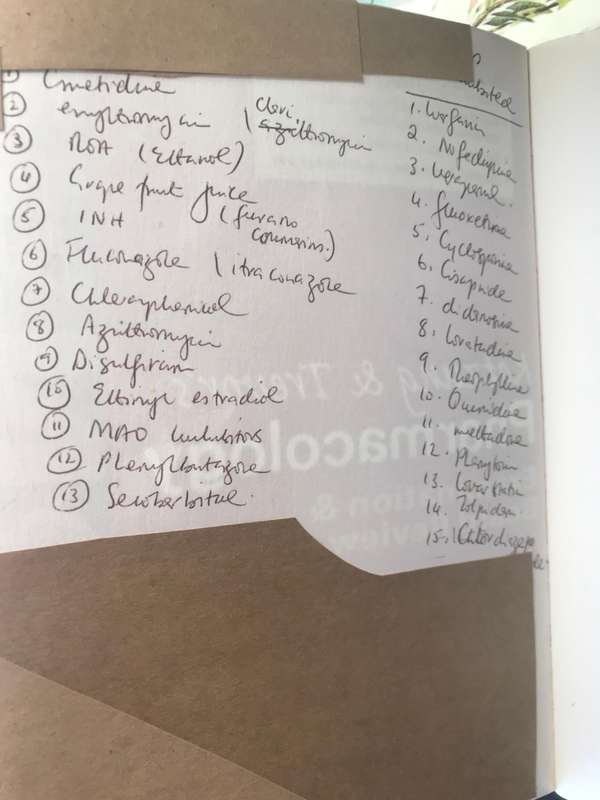 ① Cimetidine
② erythromycin / Clari.
azithromycin
③ ROA (Ethanol)
④ Grape fruit juice
(furano
coumarins.)
⑤ INH
⑥ Fluconazole / itraconazole
⑦ Chloramphenicol
⑧ Azithromycin
⑨ Disulfiram
⑩ Ethinyl estradiol
⑪ MAO inhibitors
⑫ Phenylbutazone
⑬ Secobarbital.
1. Warfarin
2. Nifedipine
3. Verapamil.
4. fluoxetine
5. Cyclosporine
6. Cisapride
7. didanosine
8. loratadine
9. Theophylline
10. Quinidine
11. methadone
12. Phenytoin
13. Lovastatin
14. Zolpidem.
15. Chlordiazepo